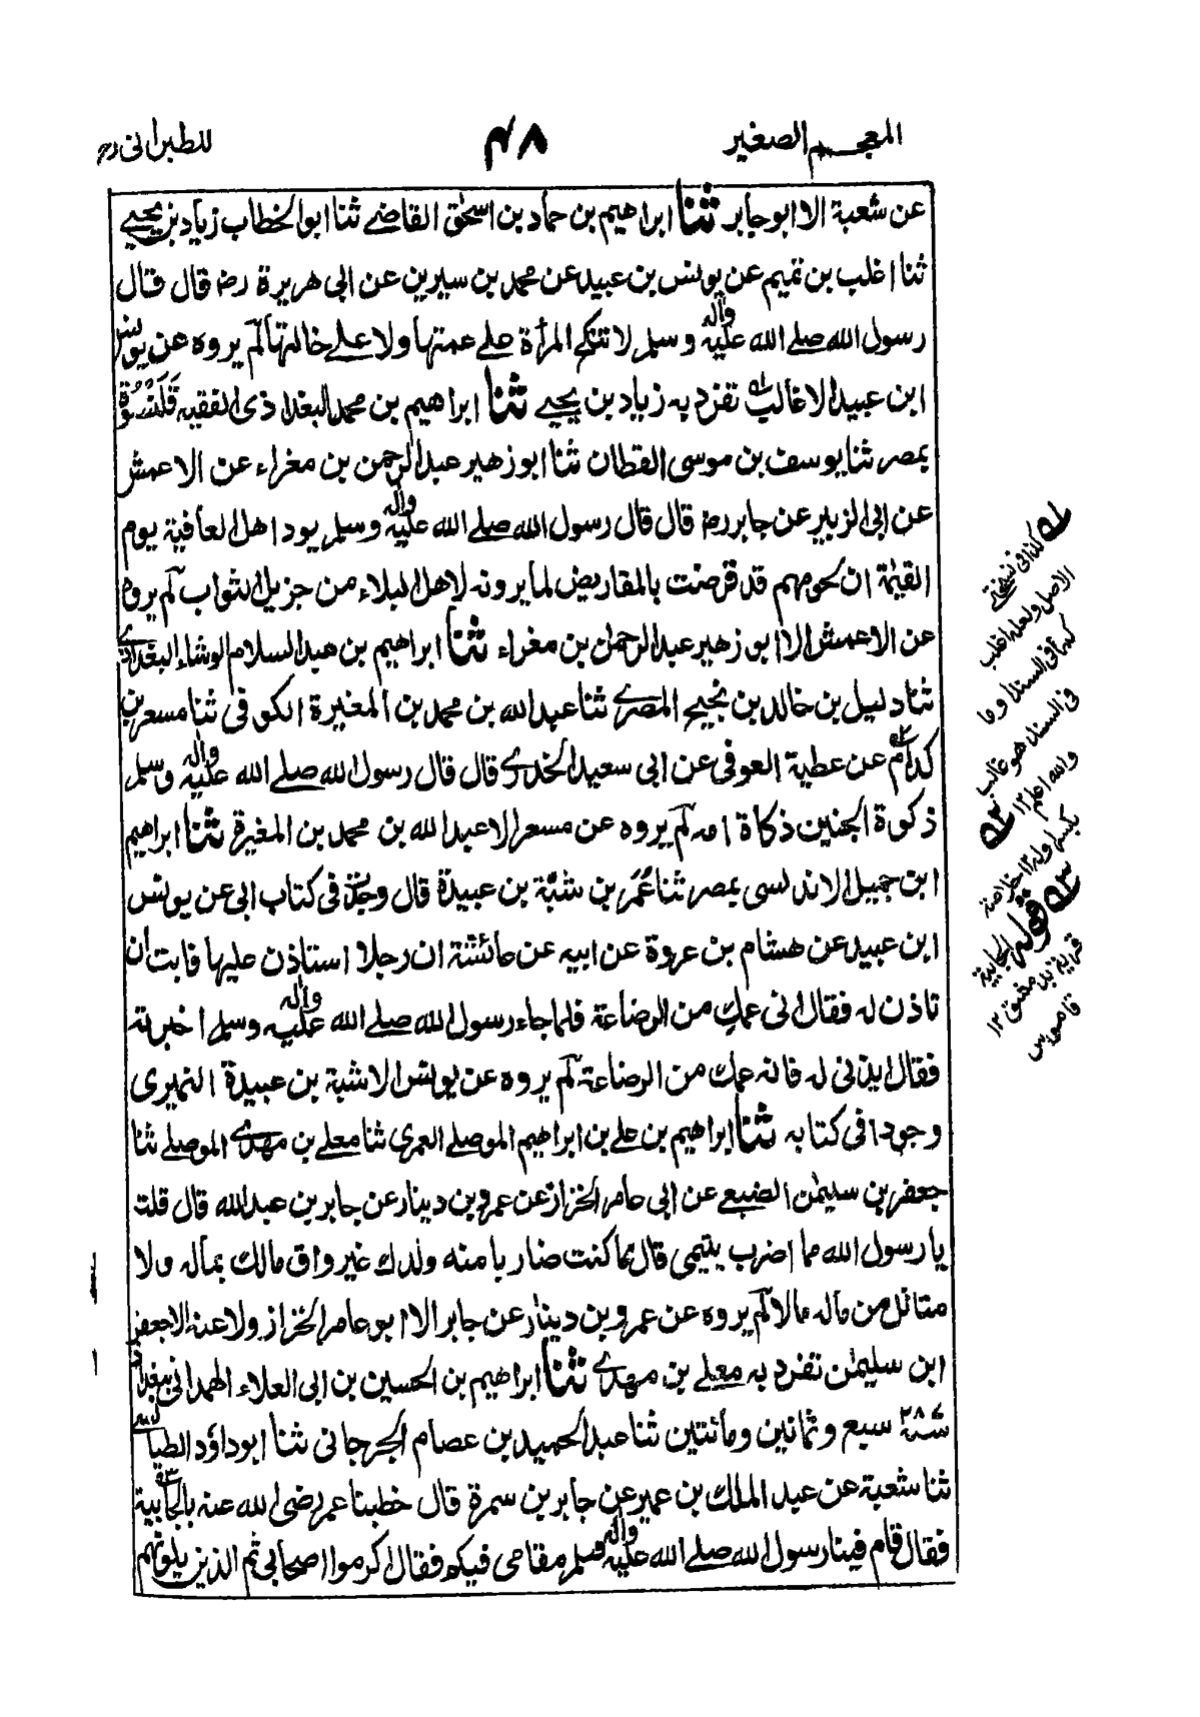 المعجم الصغير
۴۸
للطبرانی رح
عن شعبة الا ابو جابر ثنا ابراهيم بن حماد بن اسحٰق القاضے ثنا ابوالخطاب زياد بن يحيے
ثنا اغلب بن تميم عن يونس بن عبيد عن محمد بن سيرين عن ابی هريرة رض قال قال
رسول الله صلے الله عليه واٰله وسلم لا تنكح المرأة علے عمتها ولا علے خالتها لم يروه عن يونس
ابن عبيد الا غالب تفرد به زياد بن يحيے ثنا ابراهيم بن محمد البغدادی الفقيه قَلَنْسُوَة
بمصر ثنا يوسف بن موسى القطان ثنا ابو زهير عبد الرحمن بن مغراء عن الاعمش
عن ابی الزبير عن جابر رض قال قال رسول الله صلے الله عليه واٰله وسلم يود اهل العافية يوم
القيٰمة ان لحومهم قد قرضت بالمقاريض لما يرونه لاهل البلاء من جزيل الثواب لم يروه
عن الاعمش الا ابو زهير عبد الرحمان بن مغراء ثنا ابراهيم بن عبد السلام الوشاء البغدادے
ثنا دليل بن خالد بن نجيح المصرے ثنا عبد الله بن محمد بن المغيرة الكوفی ثنا مسعر بن
كدام عن عطية العوفی عن ابی سعيد الخدرے قال قال رسول الله صلے الله عليه واٰله وسلم
ذكوة الجنين ذكاة امه لم يروه عن مسعر الا عبد الله بن محمد بن المغيرة ثنا ابراهيم
ابن جميل الاندلسی بمصر ثنا عُمَر بن شبّة بن عبيدة قال وجدت فی كتاب ابی عن يونس
ابن عبيد عن هشام بن عروة عن ابيه عن عائشة ان رجلا استاذن عليها فابت ان
تاذن له فقال انی عمك من الرضاعة فلما جاء رسول الله صلے الله عليه واٰله وسلم اخبرته
فقال ايذنی له فانه عمك من الرضاعة لم يروه عن يونس الا شبة بن عبيدة النميری
وجودا فی كتابه ثنا ابراهيم بن علے بن ابراهيم الموصلے العمری ثنا معلے بن مهدے الموصلے ثنا
جعفر بن سليمٰن الضبعے عن ابی عامر الخزاز عن عمرو بن دينار عن جابر بن عبد الله قال قلت
يا رسول الله مما اضرب يتيمی قال مما كنت ضاربا منه ولدك غير واق مالك بماله ولا
متاثل من ماله مالا لم يروه عن عمرو بن دينار عن جابر الا ابو عامر الخزاز ولا عنه الا جعفر
ابن سليمٰن تفرد به معلے بن مهدے ثنا ابراهيم بن الحسين بن ابی العلاء الهمدانی ببغداد
سنة ۲۸۷ سبع وثمانين ومائتين ثنا عبد الحميد بن عصام الجرجانی ثنا ابو داؤد الطيالسے
ثنا شعبة عن عبد الملك بن عمير عن جابر بن سمرة قال خطبنا عمر رضی الله عنه بالجابية
فقال قام فينا رسول الله صلے الله عليه واٰله وسلم مقامی فيكم فقال اكرموا اصحابی ثم الذين يلونهم
۱ كذا فی نسختے
الاصل ولعله اغلب
كما فی السند او ما
فی السند هو غالب
والله اعلم ۱۲ ۲
بكسر اوله ۱۲ خلاصة
۳ قوله الجابية
قرية بدمشق ۱۲
قاموس